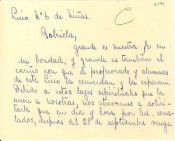 Liceo Nº 6 de Niñas.
Gabriela,
grande es nuestra fe en
su bondad, y grande es también el
cariño con que el profesorado y alumnas
de este Liceo la recuerdan y la esperan.
Debido a estos lazos espirituales que la
unen a nosotras, nos atrevemos a solici-
tarle que en día y hora por Ud. seña-
lados, después del 28 de septiembre venga